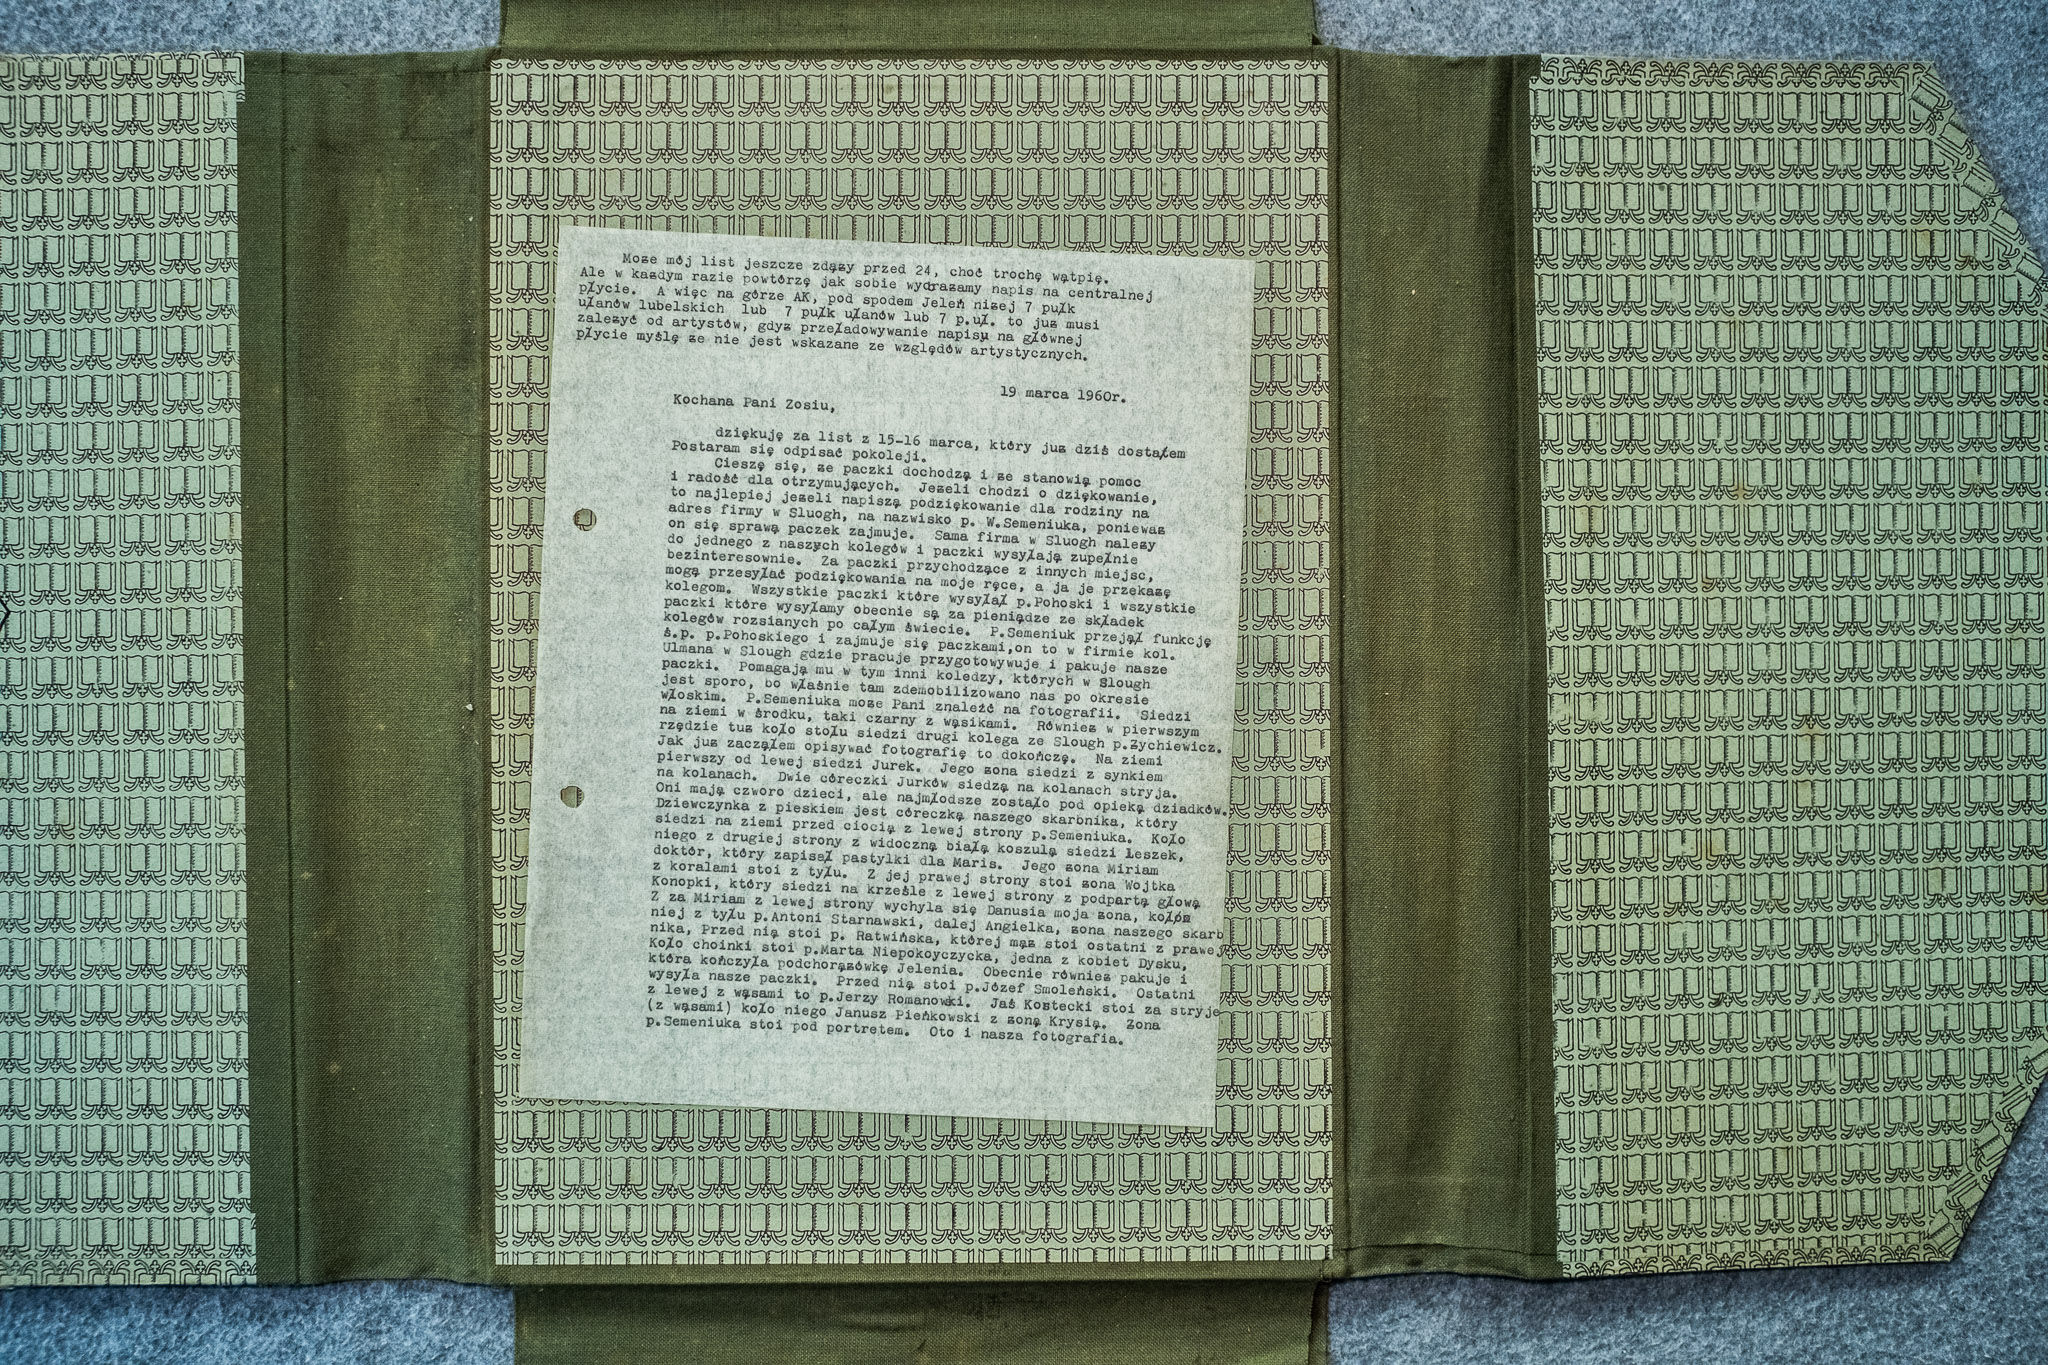 Moze mój list jeszcze zdązy przed 24, choć trochę wątpię.
Ale w kazdym razie powtórzę jak sobie wydrazamy napis na centralnej
płycie. A więc na górze AK, pod spodem Jeleń nizej 7 pułk
ułanów lubelskich lub 7 pułk ułanów lub 7 p.uł. to juz musi
zalezyć od artystów, gdyz przeładowywanie napisu na głównej
płycie myślę ze nie jest wskazane ze względów artystycznych.
19 marca 1960r.
Kochana Pani Zosiu,
dziękuję za list z 15-16 marca, który juz dziś dostałem
Postaram się odpisać pokoleji.
Cieszę się, ze paczki dochodzą i ze stanowią pomoc
i radość dla otrzymujących. Jezeli chodzi o dziękowanie,
to najlepiej jezeli napiszą podziękowanie dla rodziny na
adres firmy w Sluogh, na nazwisko p. W.Semeniuka, poniewaz
on się sprawą paczek zajmuje. Sama firma w Sluogh nalezy
do jednego z naszych kolegów i paczki wysyłają zupełnie
bezinteresownie. Za paczki przychodzące z innych miejsc,
mogą przesyłać podziękowania na moje ręce, a ja je przekazę
kolegom. Wszystkie paczki które wysyłał p.Pohoski i wszystkie
paczki które wysyłamy obecnie są za pieniądze ze składek
kolegów rozsianych po całym świecie. P.Semeniuk przejął funkcję
ś.p. p.Pohoskiego i zajmuje się paczkami,on to w firmie kol.
Ulmana w Slough gdzie pracuje przygotowywuje i pakuje nasze
paczki. Pomagają mu w tym inni koledzy, których w Slough
jest sporo, bo właśnie tam zdemobilizowano nas po okresie
włoskim. P.Semeniuka moze Pani znaleźć na fotografii. Siedzi
na ziemi w środku, taki czarny z wąsikami. Równiez w pierwszym
rzędzie tuz koło stołu siedzi drugi kolega ze Slough p.Zychiewicz.
Jak juz zacząłem opisywać fotografię to dokończę. Na ziemi
pierwszy od lewej siedzi Jurek. Jego zona siedzi z synkiem
na kolanach. Dwie córeczki Jurków siedzą na kolanach stryja.
Oni mają czworo dzieci, ale najmłodsze zostało pod opieką dziadków.
Dziewczynka z pieskiem jest córeczką naszego skarbnika, który
siedzi na ziemi przed ciocią z lewej strony p.Semeniuka. Koło
niego z drugiej strony z widoczną białą koszulą siedzi Leszek,
doktór, który zapisał pastylki dla Maris. Jego zona Miriam
z koralami stoi z tyłu. Z jej prawej strony stoi zona Wojtka
Konopki, który siedzi na krześle z lewej strony z podpartą głową
Z za Miriam z lewej strony wychyla się Danusia moja zona, koło
niej z tyłu p.Antoni Starnawski, dalej Angielka, zona naszego skarb
nika, Przed nią stoi p. Ratwińska, której mąz stoi ostatni z prawej
Koło choinki stoi p.Marta Niepokoyczycka, jedna z kobiet Dysku,
która kończyła podchorązówkę Jelenia. Obecnie równiez pakuje i
wysyła nasze paczki. Przed nią stoi p.Józef Smoleński. Ostatni
z lewej z wąsami to p.Jerzy Romanowski. Jaś Kostecki stoi za stryje
(z wąsami) koło niego Janusz Pieńkowski z zoną Krysią. Zona
p.Semeniuka stoi pod portretem. Oto i nasza fotografia.